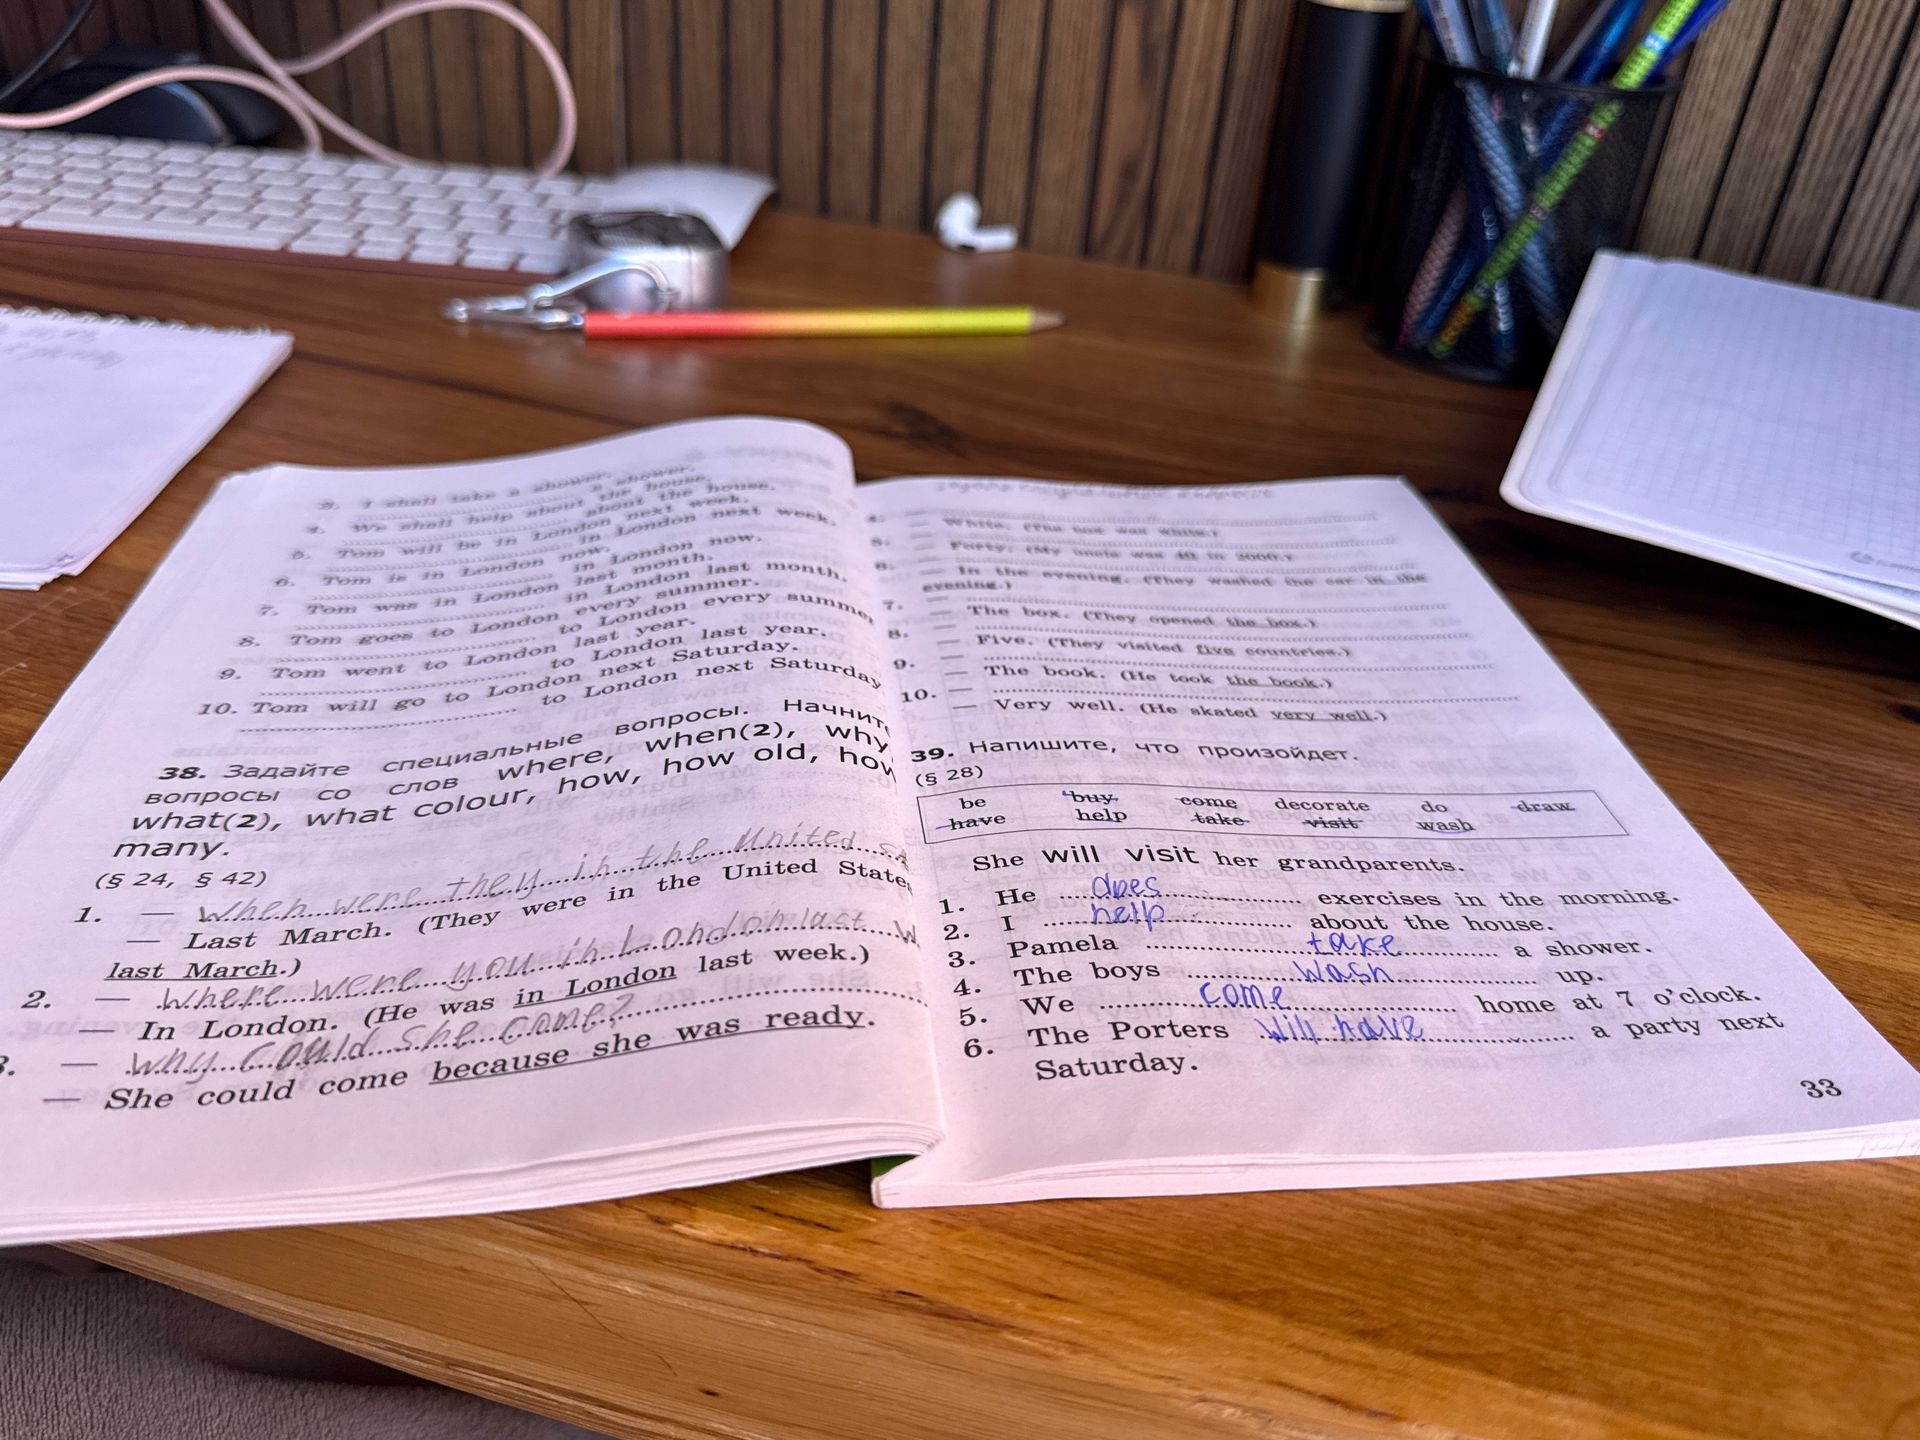 3. I shall take a shower.
a shower.
4. We shall help about the house.
about the house.
5. Tom will be in London next week.
in London next week.
6. Tom is in London now.
in London now.
7. Tom was in London last month.
in London last month.
8. Tom goes to London every summer.
to London every summer
9. Tom went to London last year.
to London last year.
10. Tom will go to London next Saturday.
to London next Saturday
38. Задайте специальные вопросы. Начните
вопросы со слов where, when(2), why,
what(2), what colour, how, how old, how
many.
(§ 24, § 42)
1. — When were they in the United
— Last March. (They were in the United States
last March.)
2. — Where were you in London last
— In London. (He was in London last week.)
— Why could she come?
— She could come because she was ready.
— White. (The hat was white.)
— Forty. (My uncle was 40 in 2000.)
— In the evening. (They washed the car in the
evening.)
7. —
— The box. (They opened the box.)
8. —
— Five. (They visited five countries.)
9. —
— The book. (He took the book.)
10. —
— Very well. (He skated very well.)
39. Напишите, что произойдет.
(§ 28)
be buy come decorate do draw
have help take visit wash
She will visit her grandparents.
1. He does exercises in the morning.
2. I help about the house.
3. Pamela take a shower.
4. The boys wash up.
5. We come home at 7 o'clock.
6. The Porters will have a party next
Saturday.
33